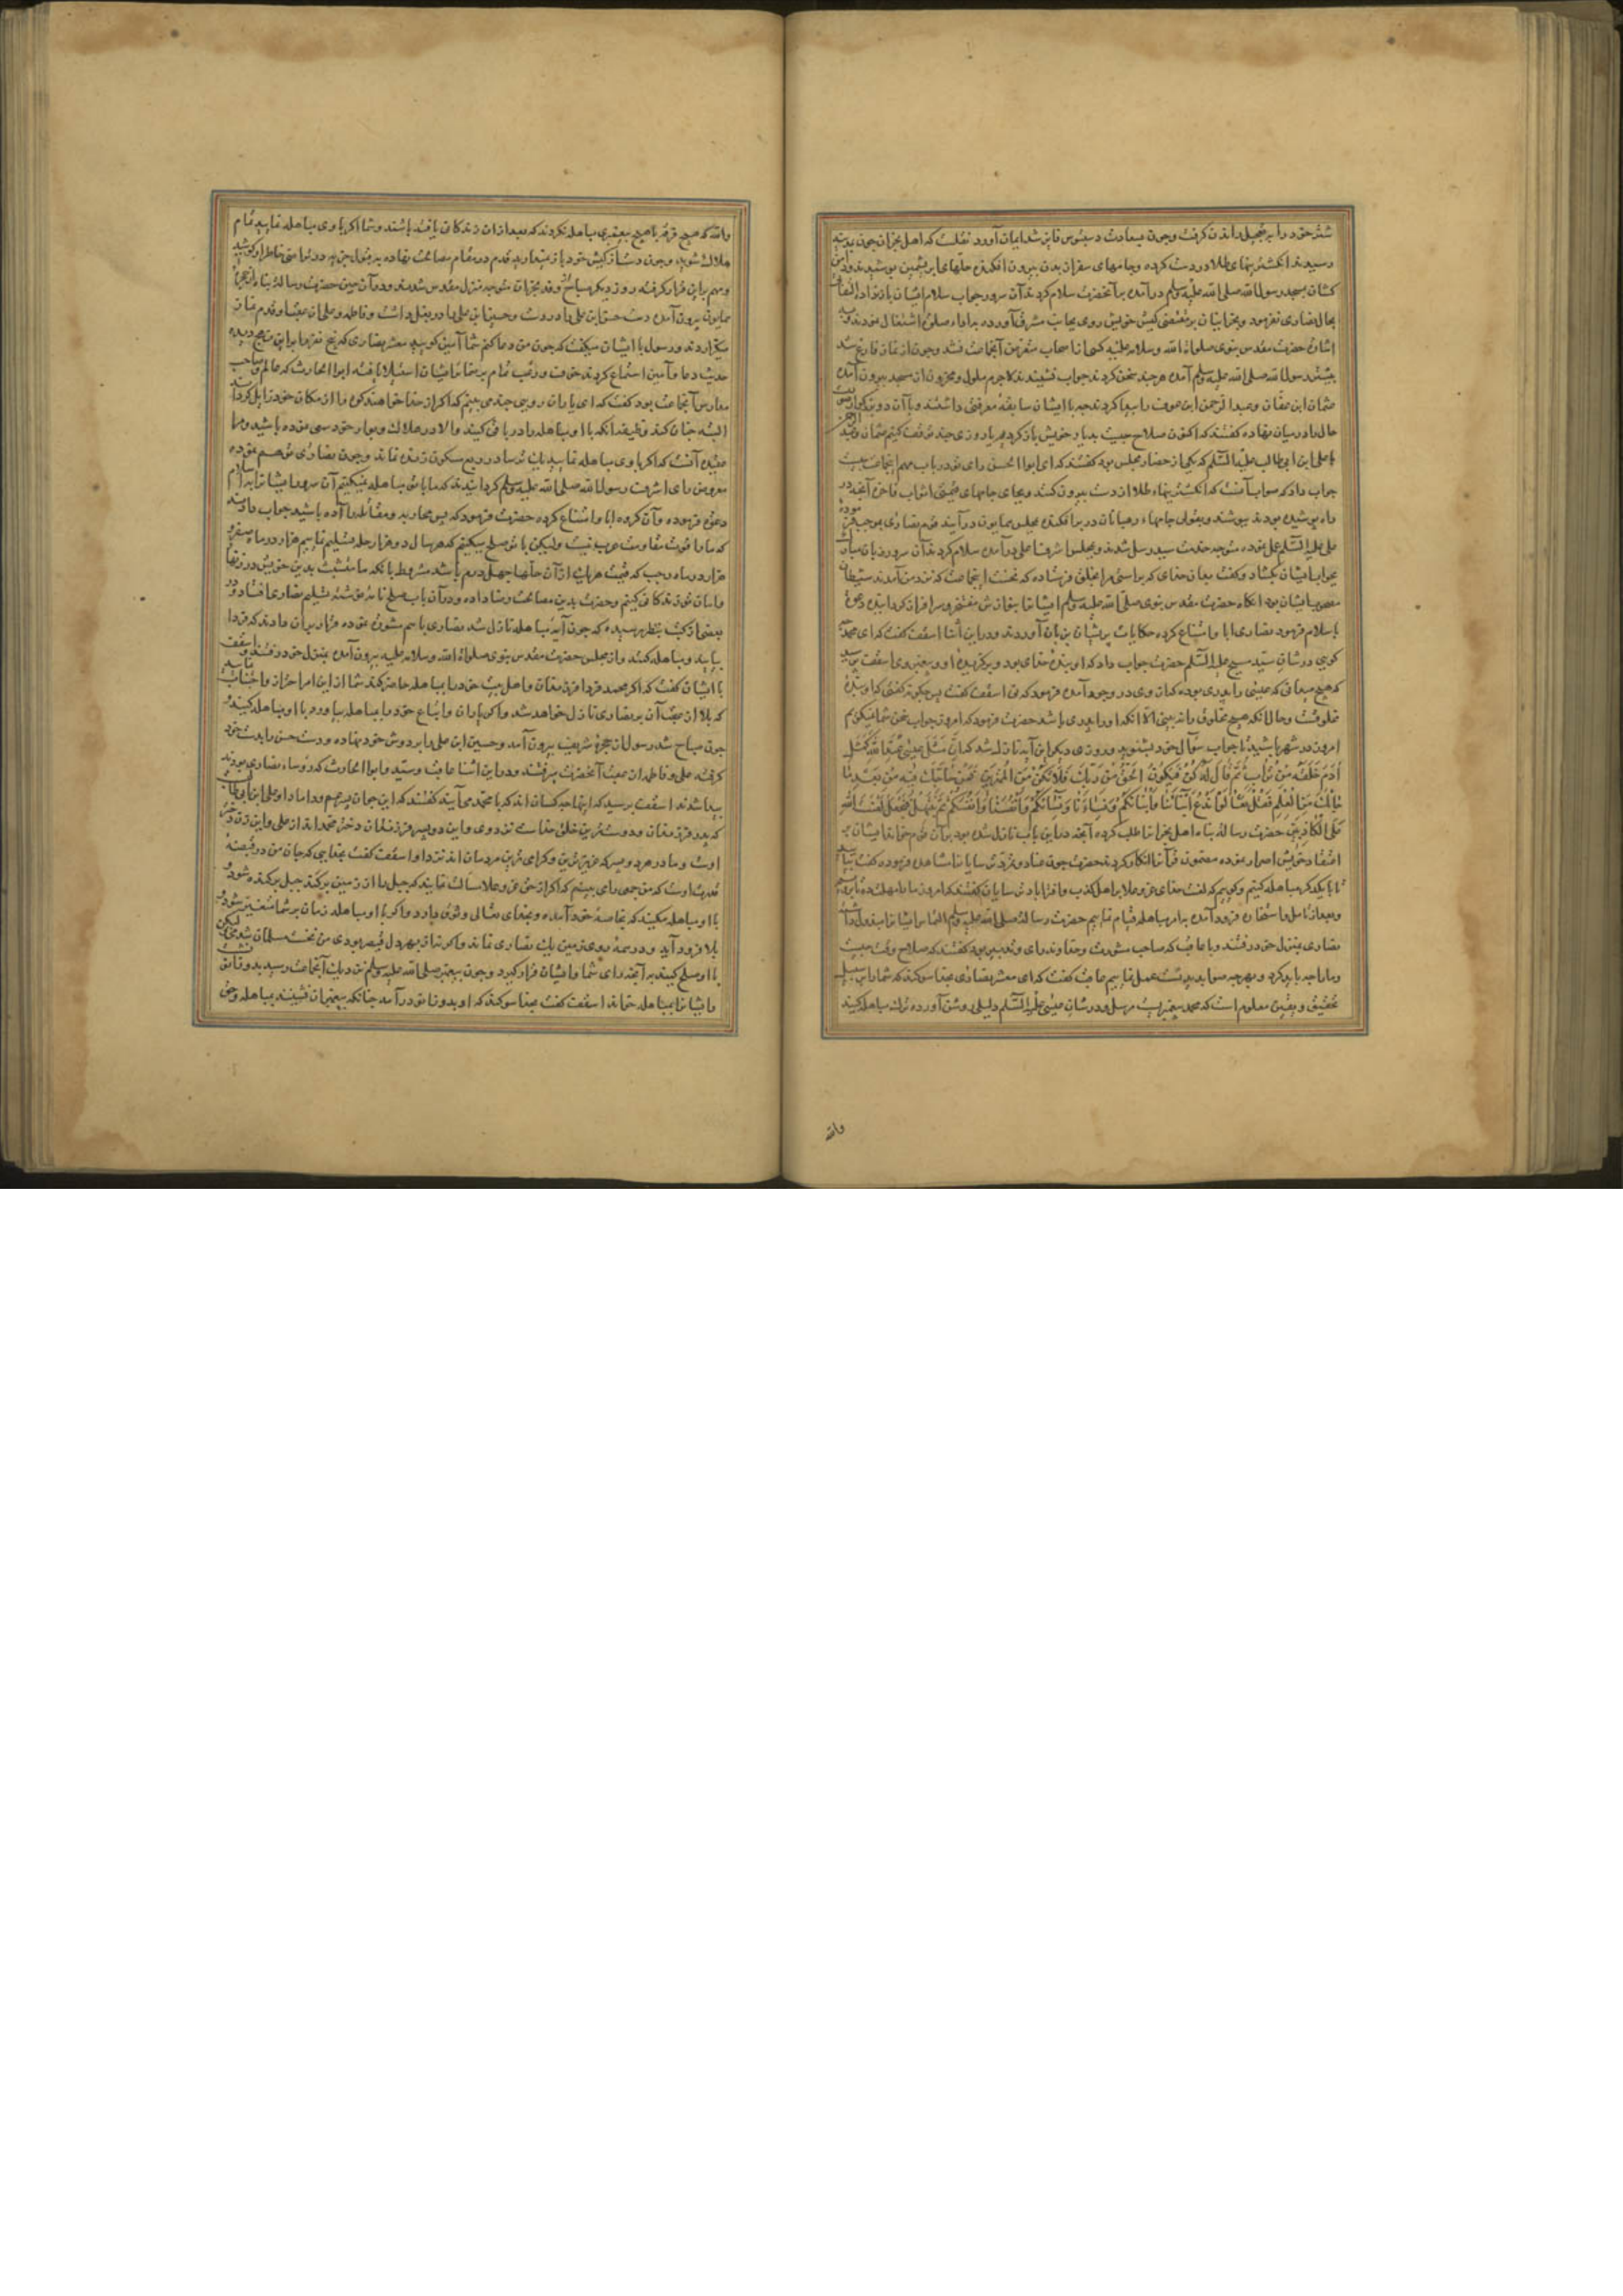 شتر خود را به تعجیل راندن گرفت و چون بسعادت دستبوس فایز شد ایمان آورد نقلست که اهل نجران چون بمدینه
رسیدند انکشتریهای طلا در دست کرده و جامهای سفر از بدن بیرون افکنده حلّهای ابریشمین پوشیدند و دامن
کشان بمسجد رسول الله صلی الله علیه وسلم درآمده بر آنحضرت سلام کردند آن سرور جواب سلام ایشان باز نداد و التفات
بحال نصاری نفرمود و نجرانیان بر مقتضی کیش خویش روی بجانب مشرق آورده به اداء صلوة اشتغال نمودند و به
اشارة حضرت مقدس نبوی صلوات الله وسلامه علیه کسی از اصحاب متعرض آنجماعت نشد و چون از نماز فارغ شدند
پیش رسول الله صلی الله علیه وسلم آمده هر چند سخن کردند جواب نشنیدند لاجرم ملول و محزون از مسجد بیرون آمده
عثمان ابن عفان و عبد الرحمن ابن عوف را پیدا کردند چه با ایشان سابقه معرفتی داشتند و با آن دو بزرگوار صورت
حال را در میان نهاده کفتند که اکنون صلاح چیست بدیار خویش باز کردیم یا روزی چند توقف کنیم عثمان و عبد الرحمن
با علی ابن ابی طالب علیه السّلم که یکی از حضار مجلس بود کفتند که ای ابوا الحسن رای تو در باب مهم اینجماعت چیست
جواب داد که صواب آنست که انکشتریهاء طلا از دست بیرون کنند و بجای جامهای قیمتی اثواب فاخره آنچه در
راه پوشیده بودند بپوشند و بعضی جامهاء رهبانان در بر افکنده بمجلس همایون درآیند قوم نصاری بموجب فرموده
علی علیه السّلم عمل نموده متوجه خدمت سید رسل شدند و بمجلس اشرف اعلی درآمده سلام کردند آن سرور زبان مبارک
بجواب ایشان بکشاد و کفت بدان خدای که براستی مرا بخلق فرستاده که نخست اینجماعت که نزد من آمدند شیطان
مصحوب ایشان بود انکاه حضرت مقدس نبوی صلی الله علیه وسلم ایشانرا بنوازش مفتخر و سرافراز کردانیده دعوة
باسلام فرمود نصاری ابا و امتناع کرده حکایات پریشان بر زبان آوردند و در این اثنا اسقف کفت که ای محمد چه
کویی در شان سید مسیح علیه السّلم حضرت جواب داد که او بنده خدای بود و برکزیده او و پیغمبر وی اسقف پرسید
که هیچ میدانی که عیسی را پدری بوده که از وی در وجود آمده فرمود که نی اسقف کفت پس چکونه کفتی که او بنده
مخلوقست و حالانکه هیچ مخلوق را نه بینی الا انکه او را پدری باشد حضرت فرمود که امروز جواب سخن شما نمیکنم
امروز در شهر باشید تا جواب سؤال خود بشنوید و روزی دیکر این آیه نازل شد که اِنَّ مَثَلَ عِیسَی عِندَ اللهِ کَمَثَلِ
آدَمَ خَلَقَهُ مِنْ تُرَابٍ ثُمَّ قَالَ لَهُ کُنْ فَیَکُونُ الْحَقُّ مِنْ رَبِّكَ فَلَا تَكُنْ مِنَ الْمُمْتَرِینَ فَمَنْ حَاجَّكَ فِیهِ مِنْ بَعْدِ مَا
جَاءَكَ مِنَ الْعِلْمِ فَقُلْ تَعَالَوْا نَدْعُ أَبْنَاءَنَا وَأَبْنَاءَكُمْ وَنِسَاءَنَا وَنِسَاءَكُمْ وَأَنْفُسَنَا وَأَنْفُسَكُمْ ثُمَّ نَبْتَهِلْ فَنَجْعَلْ لَعْنَتَ اللهِ
عَلَی الْکَاذِبِینَ حضرت رسالة پناه اهل نجرانرا طلب کرده آنچه در این باب نازل شده بود بر آن قوم خواند ایشان بر
اعتقاد خویش اصرار نموده مضمون قرآنرا انکار کردند حضرت چون عناد و تمرد ترسایانرا مشاهده فرموده کفت بیایید
تا با یکدکر مباهله کنیم و کوییم که لعنت خدای عز وعلا بر اهل کذب و افترا باد ترسایان کفتند که امروز ما را مهلت ده تا برویم
و بعد از تامل و استخاره فرود آمده به امر مباهله قیام نماییم حضرت رسالة صلی الله علیه وسلم التماس ایشانرا مبذول داشته
نصاری بمنزل خود رفتند و با عاقب که صاحب مشورت و خداوند رای و تدبیر بود کفتند که صلاح وقت چیست
و ما را چه باید کرد و بهر چه صواب بود بدست عمل نماییم عاقب کفت که ای معشر نصاری بخدا سوکند که شما را بر سبیل
تحقیق و یقین معلوم است که محمد پیغمبریست مرسل و در شان عیسی علیه السّلم دلیلی روشن آورده ترك مباهله کنید
والله
والله که هیچ قوم با هیچ پیغمبری مباهله نکردند که بعد از آن زندکانی یافته باشند و شما اکر با وی مباهله نمایید تمام
هلاك شوید و چون دست از کیش خود باز نمیدارید قدم در مقام مصالحت نهاده به هر نوال حتی به در تراضی خاطر او کوشید
و مهم براین قرار کرفته روز دیکر صباح وفد نجران متوجه منزل مقدس شدند و در آن حین حضرت رسالة پناه از حجرة
همایون بیرون آمده دست حسن ابن علی را در دست و حسین ابن علی را در بغل داشت و فاطمه و علی از عقب او قدم می
کزاردند و رسول با ایشان میکفت که چون من دعا کنم شما آمین کویید معشر نصاری که پنج نفر را بر این نهج دیده
حدیث دعا و آمین استماع کردند خوف و رعب تمام بر ضمایر ایشان استیلا یافته ابوا الحارث که عالم و صاحب
مدارس آنجماعت بود کفت که ای یاران رویی چند می بینم که اکر از خدا خواهند که کوه را از مکان خود زایل کرداند
البته چنان کند وظیفه آنکه با او مباهله را در باقی کنید والا در هلاك و بوار خود سعی نموده باشید و مرا
عقیده آنست که اکر با وی مباهله نمایید یك ترسا در ربع مسکون زنده نماند و چون نصاری توهم نموده
معروض رای اشرف رسول الله صلی الله علیه وسلم کردانیدند که ما با تو مباهله نمیکنیم آن سرور ایشانرا به اسلام
دعوة فرموده و آن کروه ابا و امتناع کرده حضرت فرمود که پس محاربه و مقاتله را آماده باشید جواب دادند
که ما را قوت مقاومت عرب نیست ولیکن با تو صلح میکنیم که هر سال دو هزار حله تسلیم نماییم هزار در ماه صفر و
هزار در ماه رجب که قیمت هر یك از آن حلها چهل درم باشد مشروط بانکه ما متشبث بدین خویش در زینهار
و امان تو زندکانی کنیم و حضرت بدین مصالحت رضا داده و در آن باب صلح نامه نوشته تسلیم نصاری افتاد و در
بعضی از کتب بنظر رسیده که چون آیه مباهله نازل شد نصاری با هم مشورة نموده قرار بر آن دادند که فردا
بیایند و مباهله کنند و از مجلس حضرت مقدس نبوی صلوات الله وسلامه علیه بیرون آمده بمنزل خود رفتند و اسقف
با ایشان کفت که اکر محمد فردا فرزندان و اهل بیت خود را بمباهله حاضر کند شما از این امر احتراز و اجتناب نمایید
که بلا از عقب آن بر نصاری نازل خواهد شد و اکر یاران و اتباع خود را بمباهله بیاورد با او مباهله کنید و
چون صباح شد رسول از حجرة شریفه بیرون آمد و حسین ابن علی را بر دوش خود نهاده و دست حسن را بدست خود
کرفته علی و فاطمه از عقب آنحضرت میرفتند و در این اثنا عاقب و سید و ابوا الحارث که رؤساء نصاری بودند
پیدا شدند اسقف پرسید که اینها چه کسان اند که با محمد می آیند کفتند که این جوان پسر عم و داماد او علی ابن ابی طالب
که پدر فرزندان و دوسترین خلق خداست نزد وی و این دو پسر فرزندان دختر محمد اند از علی و این زن دختر
اوست و مادر هر دو پسر که عزیزترین و کرامی ترین مردمان اند نزد او اسقف کفت بخدایی که جان من در قبضه
قدرت اوست که من جمعی را می بینم که اکر از حق عز وعلا مسالت نمایند که جبل را از زمین برکند جبل برکنده شود
با او مباهله مکنید که بخاصه خود آمده و بخدای تعالی وثوق دارد و اکر با او مباهله زمان بر شما متغیر شود و
بلا فرود آید و در همه روی زمین یك نصاری نماند و اکر نه از بهر دل قیصر بودی من نخست مسلمان شدمی لیکن
با او صلح کنید به آنچه رای شما و ایشان قرار کیرد و چون پیغمبر صلی الله علیه وسلم نزدیك آنجماعت رسید بدو زانو نشست
و ایشانرا بمباهله خواند اسقف کفت بخدا سوکند که او بدو زانو درآمد چنانکه پیغمبران نشینند بمباهله و چون